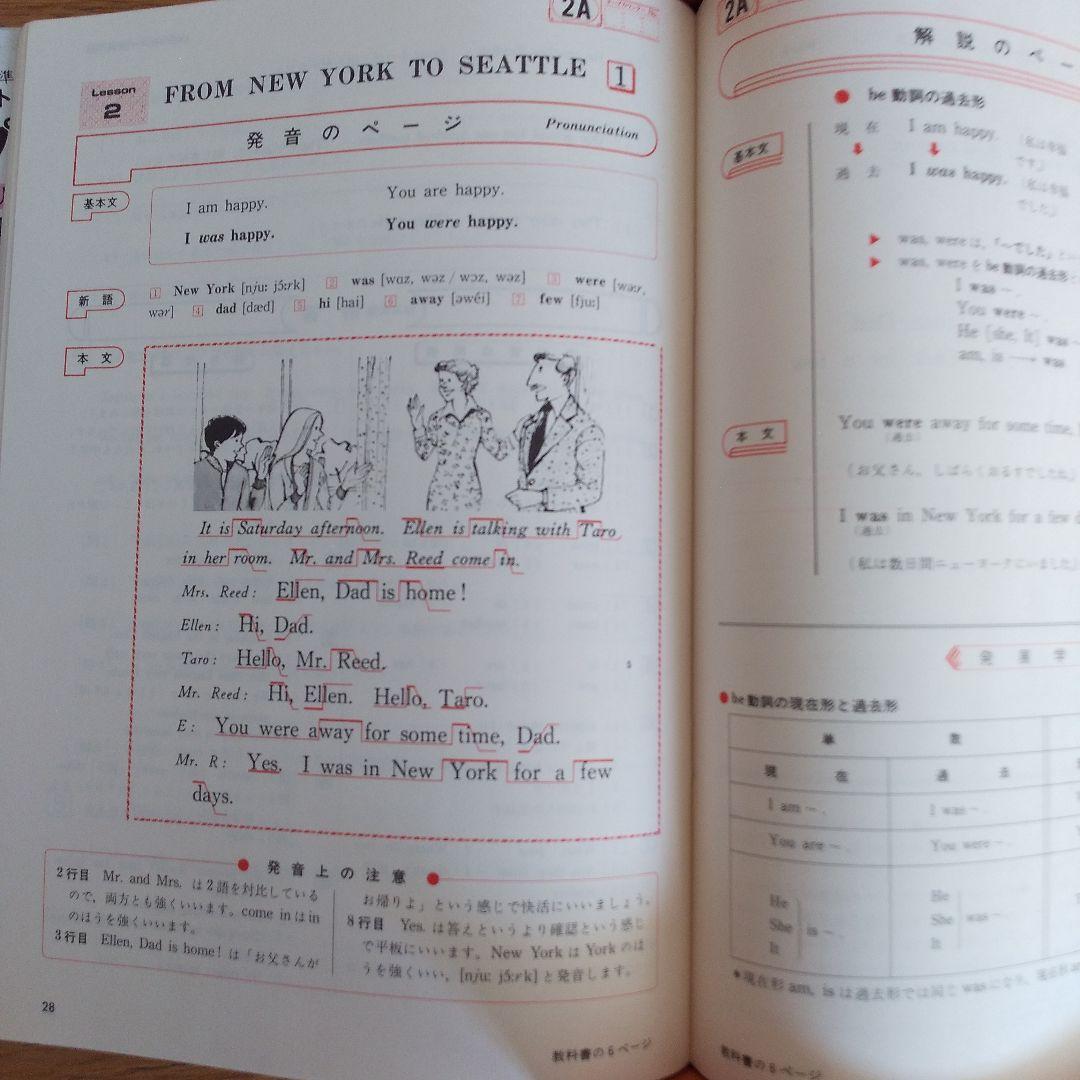 2A
Lesson 2
FROM NEW YORK TO SEATTLE 1
発音のページ Pronunciation
基本文
I am happy. You are happy.
I was happy. You were happy.
新語
1 New York [nju: jɔ́:rk] 2 was [wɑz, wəz / wɔz, wəz] 3 were [wəːr,
wər] 4 dad [dæd] 5 hi [hai] 6 away [əwéi] 7 few [fju:]
本文
It is Saturday afternoon. Ellen is talking with Taro
in her room. Mr. and Mrs. Reed come in.
Mrs. Reed: Ellen, Dad is home!
Ellen: Hi, Dad.
Taro: Hello, Mr. Reed. 5
Mr. Reed: Hi, Ellen. Hello, Taro.
E: You were away for some time, Dad.
Mr. R: Yes. I was in New York for a few
days.
発音上の注意
2行目 Mr. and Mrs. は2語を対比している
ので，両方とも強くいいます。come in は in
のほうを強くいいます。
3行目 Ellen, Dad is home! は「お父さんが
お帰りよ」という感じで快活にいいましょう。
8行目 Yes. は答えというより確認という感じ
で平板にいいます。New York は York のほ
うを強くいい，[nju: jɔ́:rk] と発音します。
28
教科書の6ページ
2A
解説のペー
be動詞の過去形
基本文
現在 I am happy.
過去 I was happy.
was, were は，「〜でした」とい
was, were を be動詞の過去形と
I was 〜.
You were 〜.
He [she, it] was 〜
am, is → was
本文
You were away for some time,
(過去)
(お父さん，しばらくおるすでしたね)
I was in New York for a few d
(過去)
(私は数日間ニューヨークにいました)
発展学
be動詞の現在形と過去形
単数
現在 過去
I am 〜. I was 〜.
You are 〜. You were 〜.
He
She is 〜.
It
He
She was 〜.
It
現在形 am, is は過去形では同じ was になり，現在形
教科書の6ページ